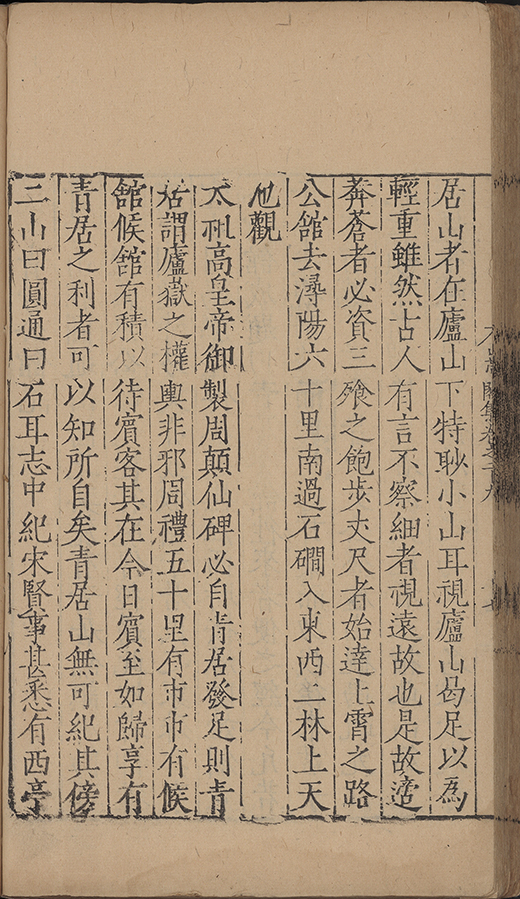 居山者在廬山下特眇小山耳視廬山曷足以為
輕重雖然古人有言不察細者視遠故也是故適
莽蒼者必資三飱之飽步丈尺者始達上霄之路
公館去潯陽六十里南過石磵入東西二林上天
池觀
太祖高皇帝御製周顛仙碑必自青居發足則青
居謂廬嶽之權輿非邪周禮五十里有市市有候
館候館有積以待賓客其在今日賓至如歸享有
青居之利者可以知所自矣青居山無可紀其傍
二山曰圓通曰石耳志中紀宋賢事甚悉有西亭